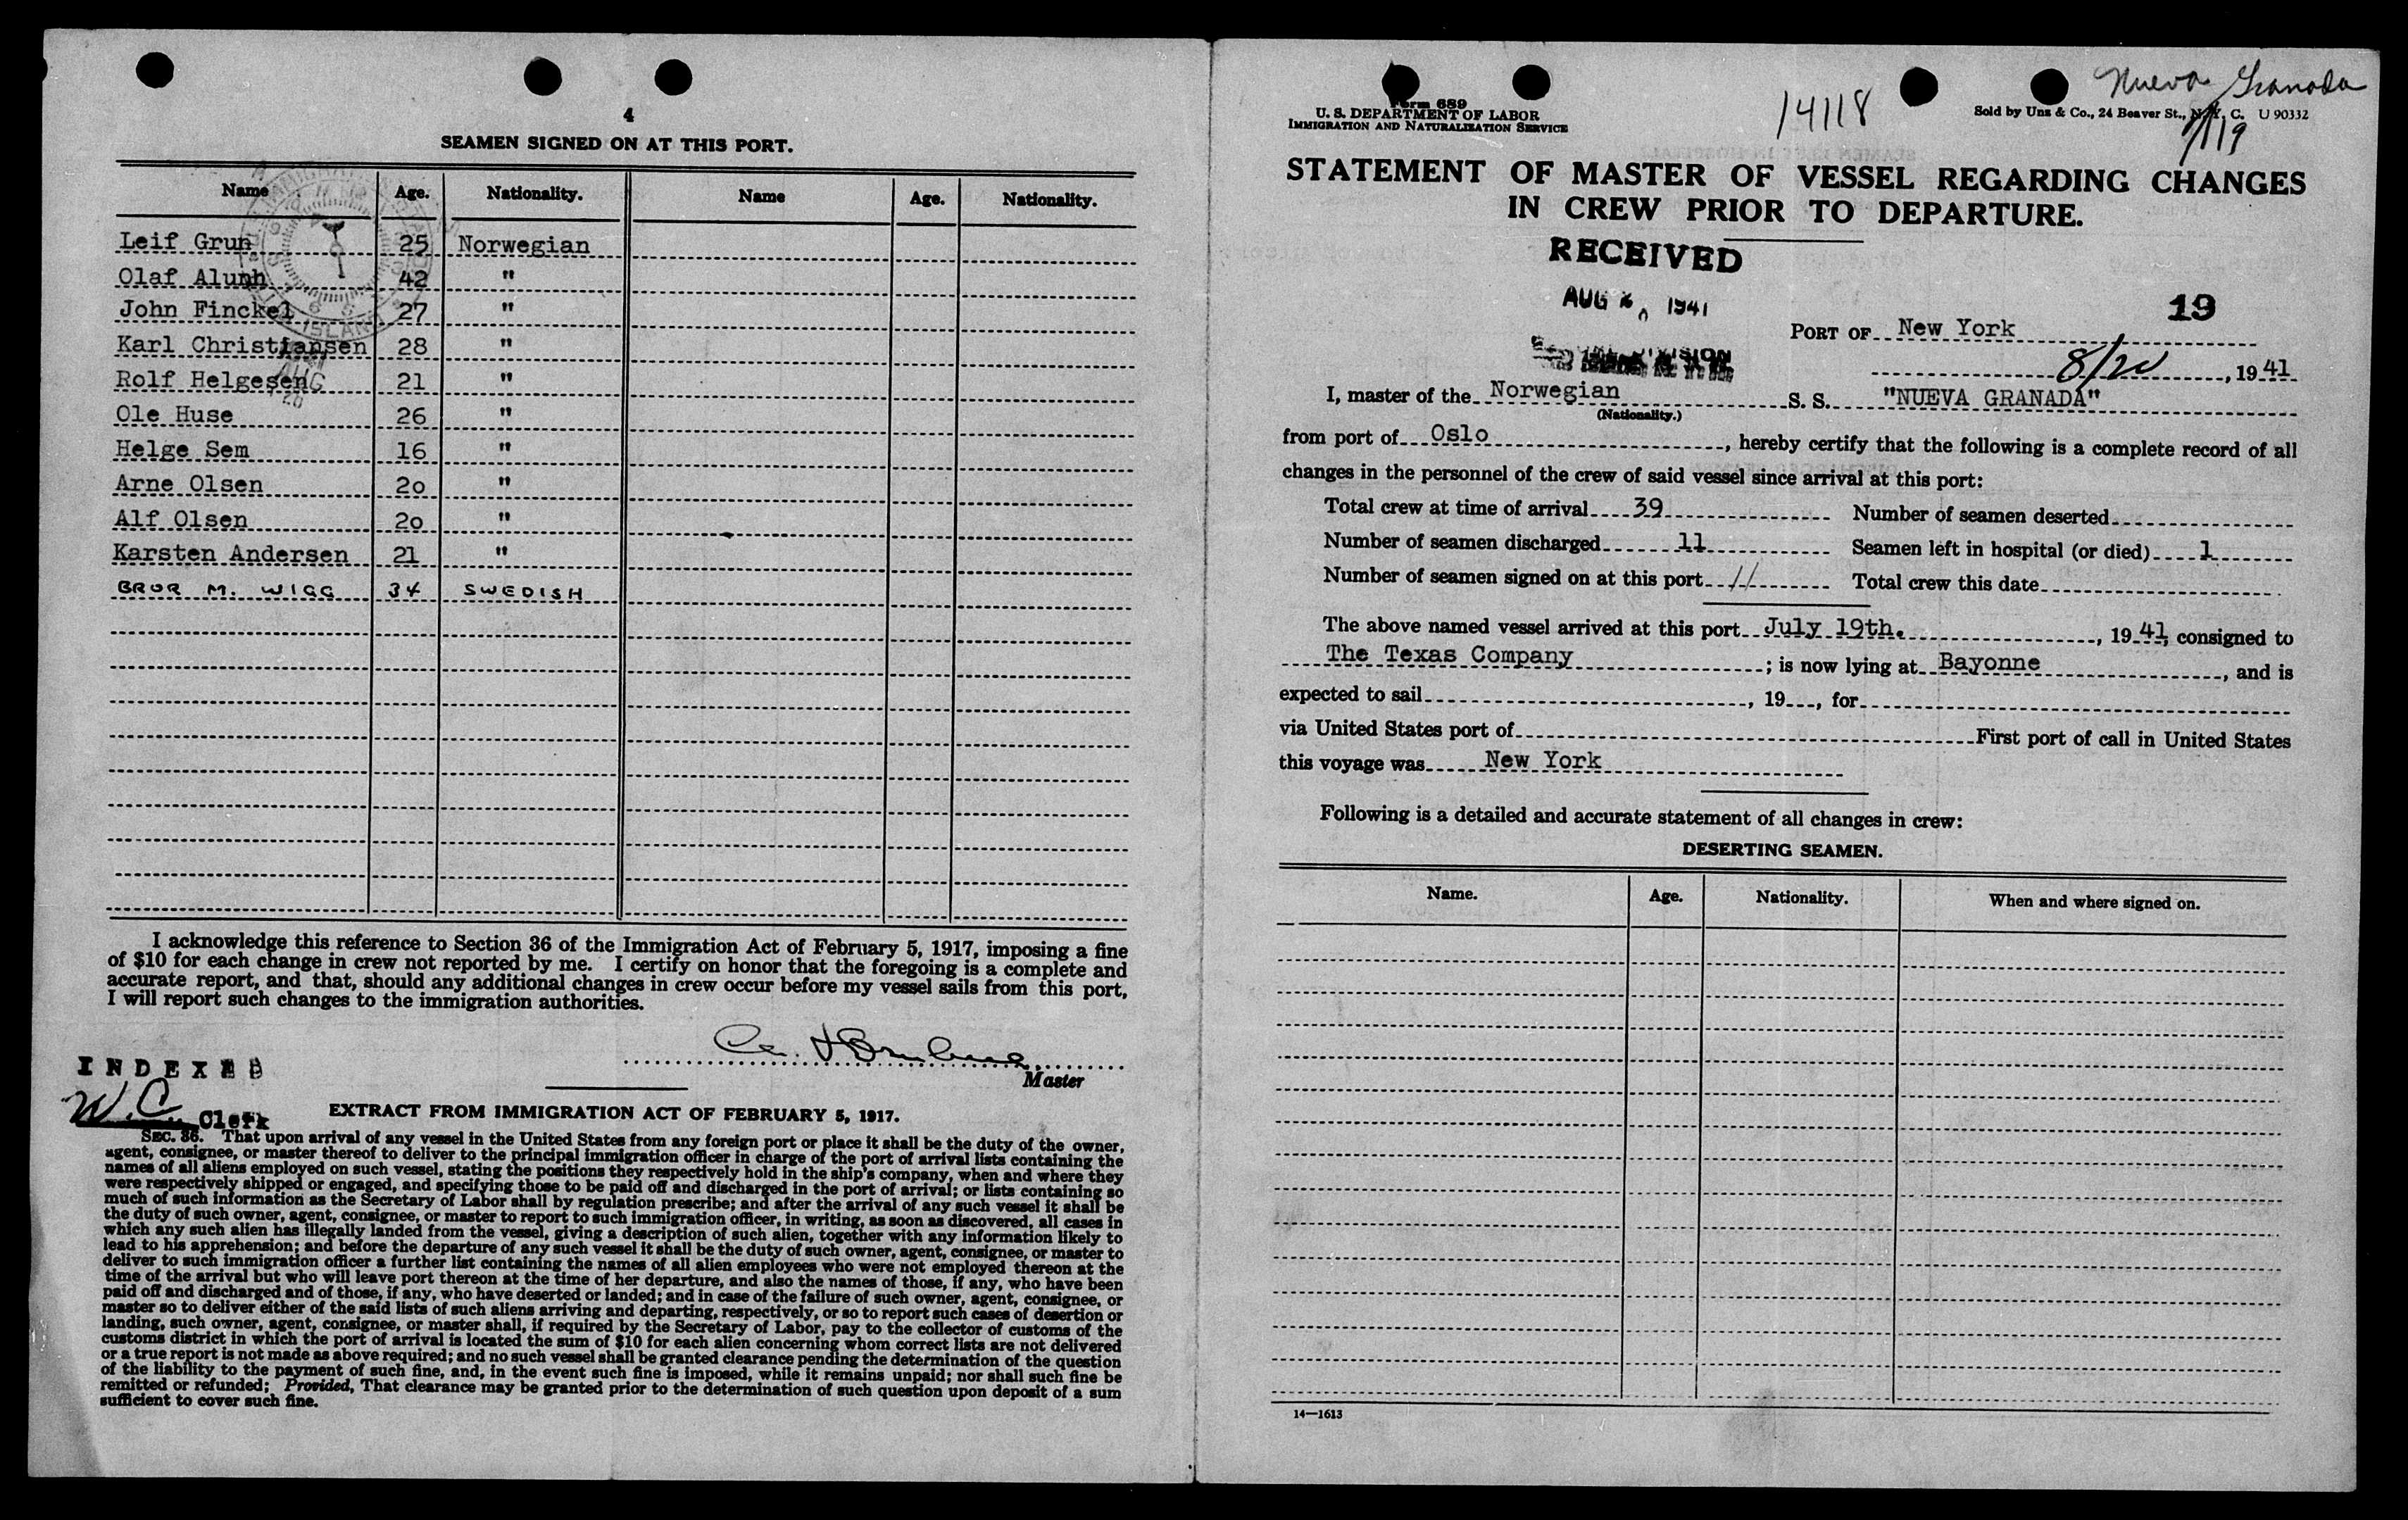 4
SEAMEN SIGNED ON AT THIS PORT.
Name Age. Nationality. Name Age. Nationality.
Leif Grun 25 Norwegian
Olaf Alunh 42 "
John Finckel 27 "
Karl Christiansen 28 "
Rolf Helgesen 21 "
Ole Huse 26 "
Helge Sem 16 "
Arne Olsen 2o "
Alf Olsen 2o "
Karsten Andersen 21 "
BROR M. WIGG 34 SWEDISH
I acknowledge this reference to Section 36 of the Immigration Act of February 5, 1917, imposing a fine
of $10 for each change in crew not reported by me. I certify on honor that the foregoing is a complete and
accurate report, and that, should any additional changes in crew occur before my vessel sails from this port,
I will report such changes to the immigration authorities.
Master
INDEXED
W.C. Clerk
EXTRACT FROM IMMIGRATION ACT OF FEBRUARY 5, 1917.
SEC. 36. That upon arrival of any vessel in the United States from any foreign port or place it shall be the duty of the owner,
agent, consignee, or master thereof to deliver to the principal immigration officer in charge of the port of arrival lists containing the
names of all aliens employed on such vessel, stating the positions they respectively hold in the ship's company, when and where they
were respectively shipped or engaged, and specifying those to be paid off and discharged in the port of arrival; or lists containing so
much of such information as the Secretary of Labor shall by regulation prescribe; and after the arrival of any such vessel it shall be
the duty of such owner, agent, consignee, or master to report to such immigration officer, in writing, as soon as discovered, all cases in
which any such alien has illegally landed from the vessel, giving a description of such alien, together with any information likely to
lead to his apprehension; and before the departure of any such vessel it shall be the duty of such owner, agent, consignee, or master to
deliver to such immigration officer a further list containing the names of all alien employees who were not employed thereon at the
time of the arrival but who will leave port thereon at the time of her departure, and also the names of those, if any, who have been
paid off and discharged and of those, if any, who have deserted or landed; and in case of the failure of such owner, agent, consignee, or
master so to deliver either of the said lists of such aliens arriving and departing, respectively, or so to report such cases of desertion or
landing, such owner, agent, consignee, or master shall, if required by the Secretary of Labor, pay to the collector of customs of the
customs district in which the port of arrival is located the sum of $10 for each alien concerning whom correct lists are not delivered
or a true report is not made as above required; and no such vessel shall be granted clearance pending the determination of the question
of the liability to the payment of such fine, and, in the event such fine is imposed, while it remains unpaid; nor shall such fine be
remitted or refunded; Provided, That clearance may be granted prior to the determination of such question upon deposit of a sum
sufficient to cover such fine.
Nueva Granada
Form 689
U. S. DEPARTMENT OF LABOR
IMMIGRATION AND NATURALIZATION SERVICE
14118
Sold by Unz & Co., 24 Beaver St., N. Y. C. U 90332
7/19
STATEMENT OF MASTER OF VESSEL REGARDING CHANGES
IN CREW PRIOR TO DEPARTURE.
RECEIVED
AUG 1941
19
PORT OF New York
8/20, 1941
I, master of the Norwegian S. S. "NUEVA GRANADA"
(Nationality.)
from port of Oslo, hereby certify that the following is a complete record of all
changes in the personnel of the crew of said vessel since arrival at this port:
Total crew at time of arrival 39 Number of seamen deserted
Number of seamen discharged 11 Seamen left in hospital (or died) 1
Number of seamen signed on at this port 11 Total crew this date
The above named vessel arrived at this port July 19th., 1941, consigned to
The Texas Company; is now lying at Bayonne, and is
expected to sail, 19, for
via United States port of First port of call in United States
this voyage was New York
Following is a detailed and accurate statement of all changes in crew:
DESERTING SEAMEN.
Name. Age. Nationality. When and where signed on.
14—1613